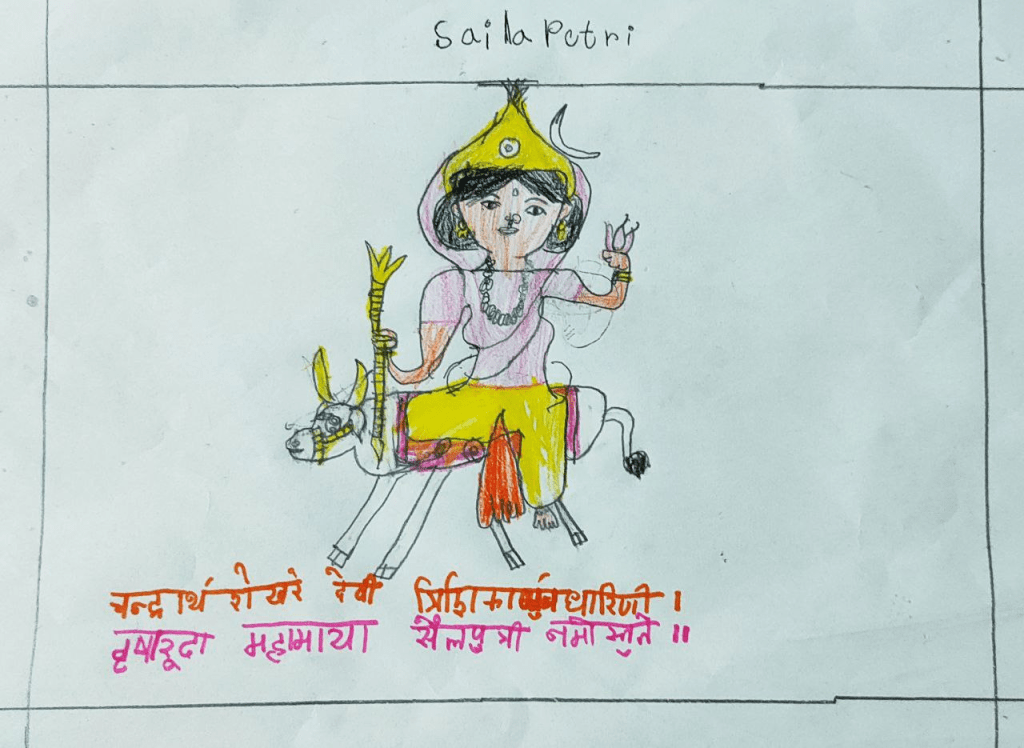 Saila Petri
चन्द्रार्थ शेखरे देवी धारिणी ।
वृषारूढा महामाया सैलपुत्री नमोस्तुते ॥